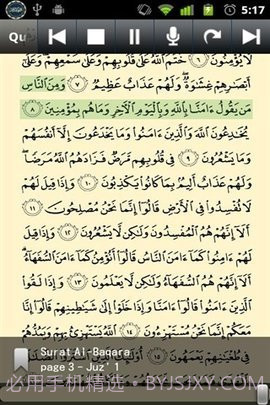 5:17
Qu
لَا يُؤْمِنُونَ ٦ خَتَمَ اللَّهُ عَلَىٰ قُلُوبِهِمْ وَعَلَىٰ سَمْعِهِمْ ۖ وَعَلَىٰ
أَبْصَٰرِهِمْ غِشَٰوَةٌ ۖ وَلَهُمْ عَذَابٌ عَظِيمٌ ٧ وَمِنَ النَّاسِ
مَن يَقُولُ ءَامَنَّا بِاللَّهِ وَبِالْيَوْمِ الْءَاخِرِ وَمَا هُم بِمُؤْمِنِينَ ٨
يُخَٰدِعُونَ اللَّهَ وَالَّذِينَ ءَامَنُوا وَمَا يَخْدَعُونَ إِلَّا أَنفُسَهُمْ
وَمَا يَشْعُرُونَ ٩ فِي قُلُوبِهِم مَّرَضٌ فَزَادَهُمُ اللَّهُ مَرَضًا ۖ
وَلَهُمْ عَذَابٌ أَلِيمٌ بِمَا كَانُوا يَكْذِبُونَ ١٠ وَإِذَا قِيلَ لَهُمْ
لَا تُفْسِدُوا فِي الْأَرْضِ قَالُوا إِنَّمَا نَحْنُ مُصْلِحُونَ ١١
أَلَا إِنَّهُمْ هُمُ الْمُفْسِدُونَ وَلَٰكِن لَّا يَشْعُرُونَ ١٢ وَإِذَا قِيلَ
لَهُمْ ءَامِنُوا كَمَا ءَامَنَ النَّاسُ قَالُوا أَنُؤْمِنُ كَمَا ءَامَنَ السُّفَهَاءُ ۗ
أَلَا إِنَّهُمْ هُمُ السُّفَهَاءُ وَلَٰكِن لَّا يَعْلَمُونَ ١٣ وَإِذَا لَقُوا
الَّذِينَ ءَامَنُوا قَالُوا ءَامَنَّا وَإِذَا خَلَوْا إِلَىٰ شَيَٰطِينِهِمْ قَالُوا إِنَّا
مَعَكُمْ إِنَّمَا نَحْنُ مُسْتَهْزِءُونَ ١٤ اللَّهُ يَسْتَهْزِئُ بِهِمْ وَيَمُدُّهُمْ
فِي طُغْيَٰنِهِمْ يَعْمَهُونَ ١٥
Surat Al-Baqara
page 3 - Juz' 1
必用手机精选·BYJSJXY.COM